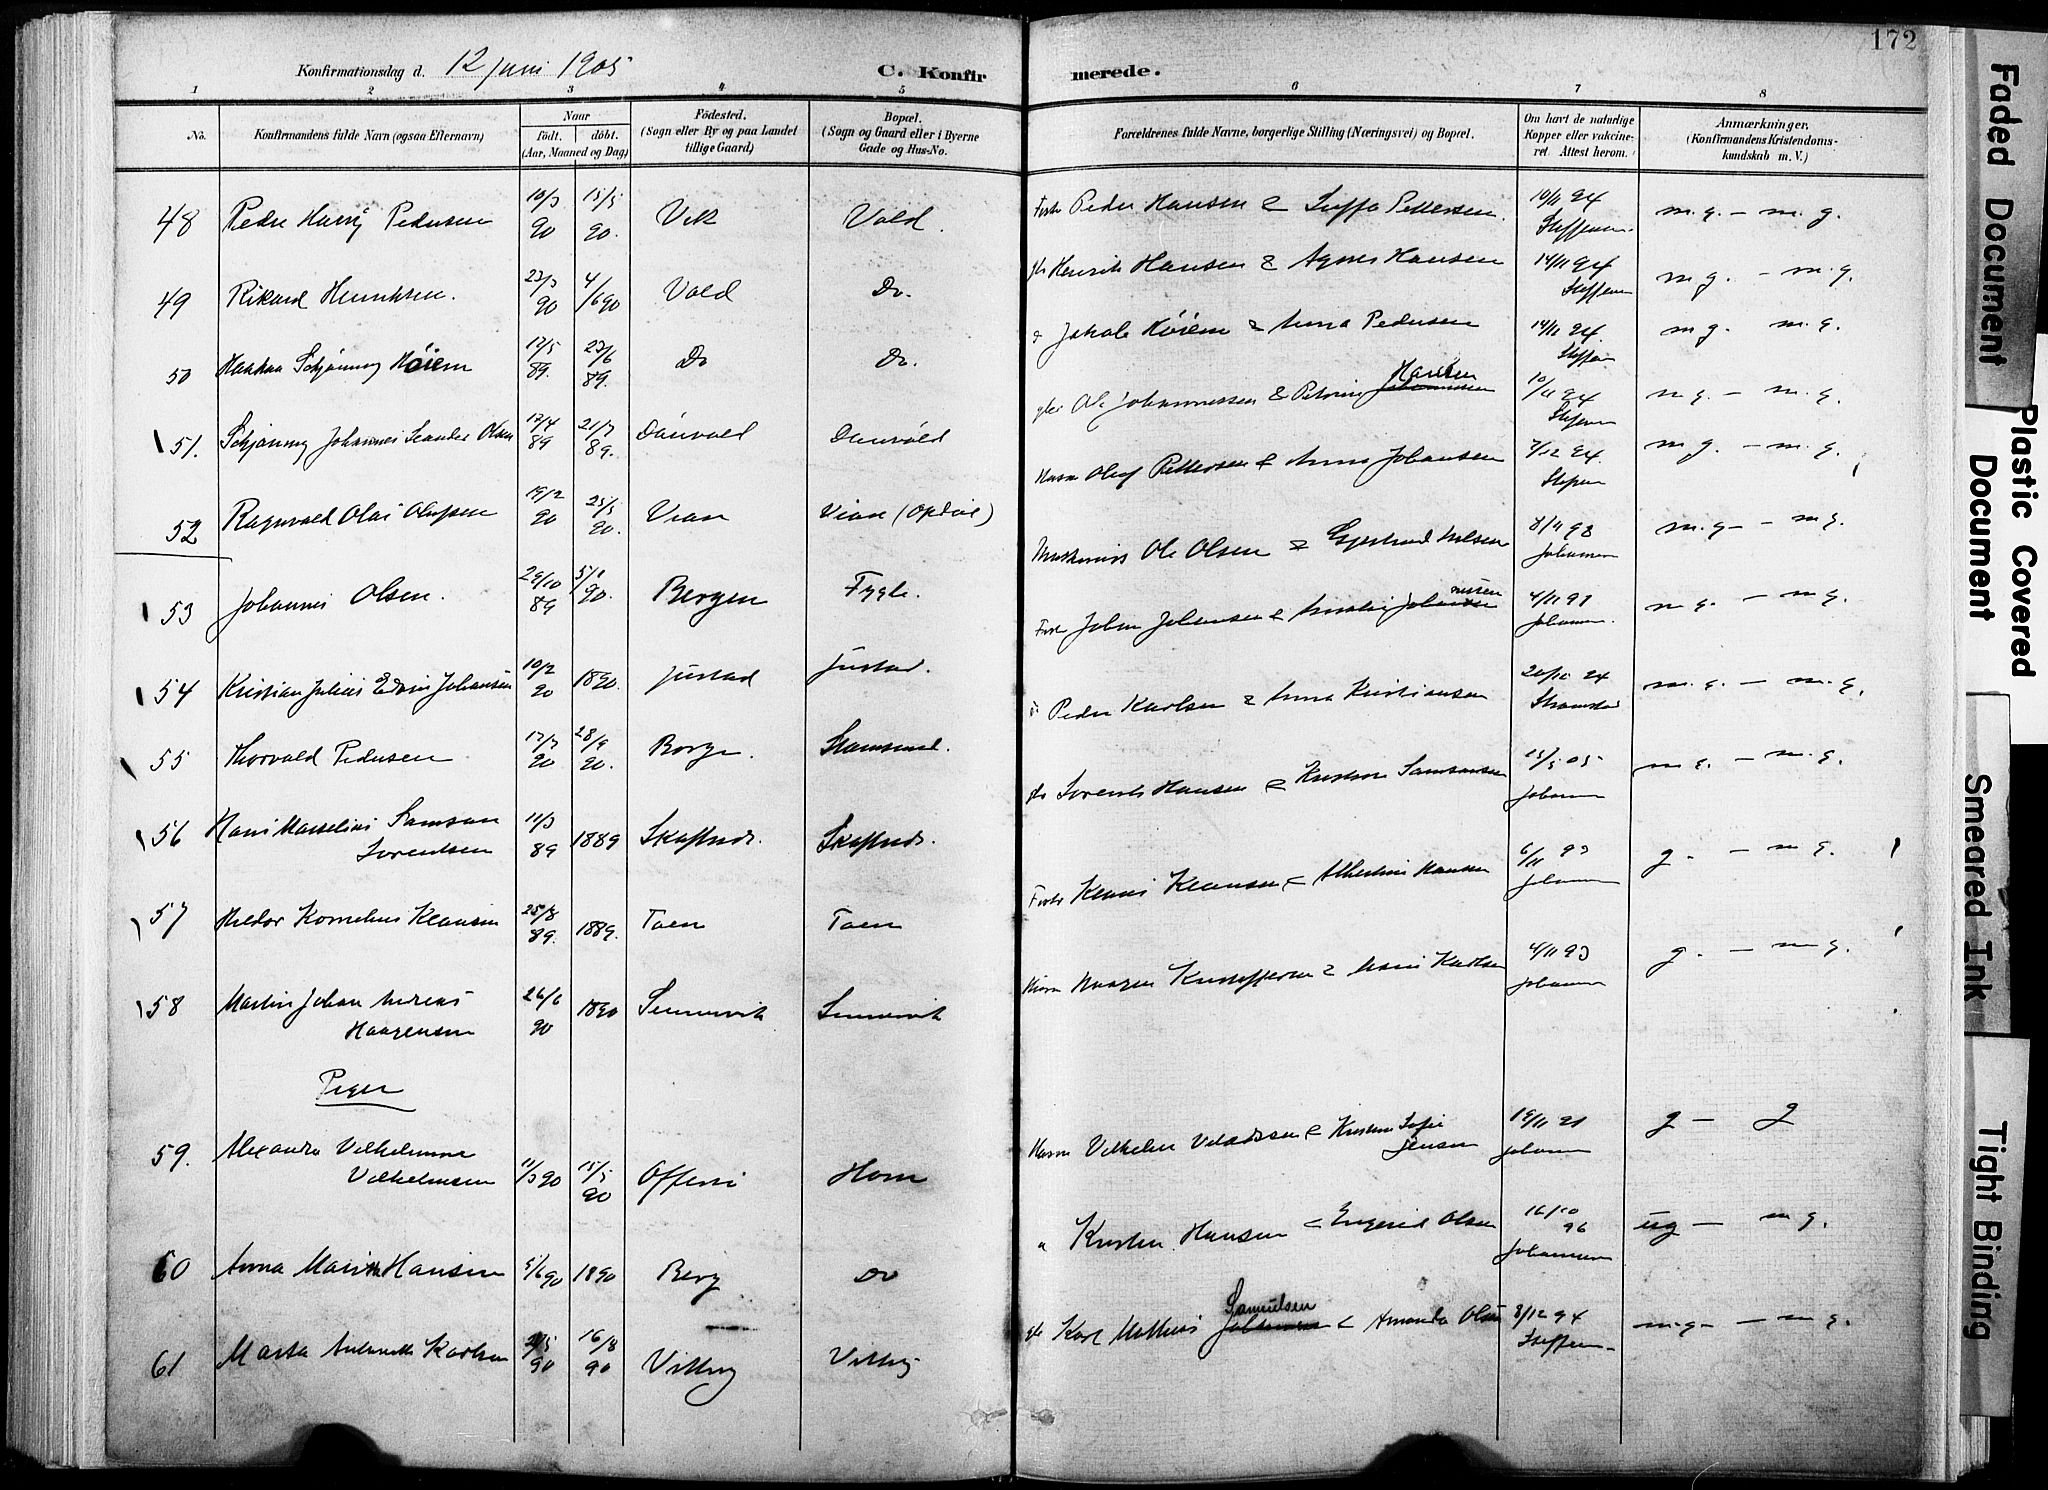 172
Konfirmationsdag d. 12 juni 1905
C. Konfirmerede.
1 2 3 4 5 6 7 8
No.
Konfirmandens fulde Navn (ogsaa Efternavn)
Naar
født. døbt.
(Aar, Maaned og Dag)
Fødested.
(Sogn eller By og paa Landet
tillige Gaard)
Bopæl.
(Sogn og Gaard eller i Byerne
Gade og Hus-No.
Forældrenes fulde Navne, borgerlige Stilling (Næringsvei) og Bopæl.
Om havt de naturlige
Kopper eller vakcine-
ret. Attest herom.
Anmærkninger.
(Konfirmandens Kristendoms-
kundskab m. V.)
48 Peder Harry Pedersen 10/3 90 15/5 90. Vik Vold. Peder Hansen & Pettersen. 10/11 94 m.g. - m.g.
49 Rikard Henriksen. 23/3 90 4/6 90 Vold Do. Henrik Hansen & Agnes Hansen 14/11 94 m.g. - m.g.
50 Haakon Schjønning Høiem 17/5 89. 23/6 89. Do Do. Jakob Høiem & Anna Pedersen 14/11 94. m.g. m.g.
51. Schjønning Johannes Leander Olsen 17/4 89 21/7 89. Ole Johannessen & Hansen 10/11 94 m.g. - m.g.
52 Ragnvald Olai Olufsen 19/2 90 25/5 90. Vian Vian Oluf Pettersen & Anna Johansen 7/12 94. m.g. - m.g.
53 Johannes Olsen. 29/10 89 5/1 90. Bergen Fygle. Ole Olsen & Gjertrud Nilsen 8/11 98 Johansen m.g. - m.g.
54 Kristian Julius Edvin Johansen 10/2 90 1890. Justad Justad. Johan Johansen & 4/11 91 Johansen. m.g. - m.g.
55 Thorvald Pedersen 17/7 90 28/9 90. Borge. Stamsund. Peder Karlsen & Anna Kristiansen 20/10 94 m.g. - m.g.
56 Hans Marselius Samson
Lorentsen 11/3 89 1889 Skaftnes. Skaftnes. Lorents Hansen & Samsonsen 15/5 05 Johansen m.g. - m.g.
57 Hildor Kornelius Klausen 25/8 89. 1889. Toen Toen Klaus Klausen & Albertine Hansen 6/11 93 Johansen g. - m.g.
58 Martin Johan Andreas
Haagensen 26/6 90 1890 Sennevik Sennevik Haagen Kristoffersen & Karlsen 4/11 93 Johansen g. - m.g.
Piger
59. Alexandra Vilhelmine
Vilhelmsen 11/3 90 15/5 90 Offersø Horn Vilhelm & Sofie
Jensen 19/11 91 Johansen g - g
60 Anna Marie Hansen 5/6 90 1890 Berg Do Kristen Hansen & Olsen 16/10 96 Johansen ug - m.g.
61 Marta Karlsen 90 16/8 90 Karl Mathias Samuelsen & Amanda Olsen 8/12 94 m.g. - m.g.
Faded Document
Plastic Covered Document
Smeared Ink
Tight Binding